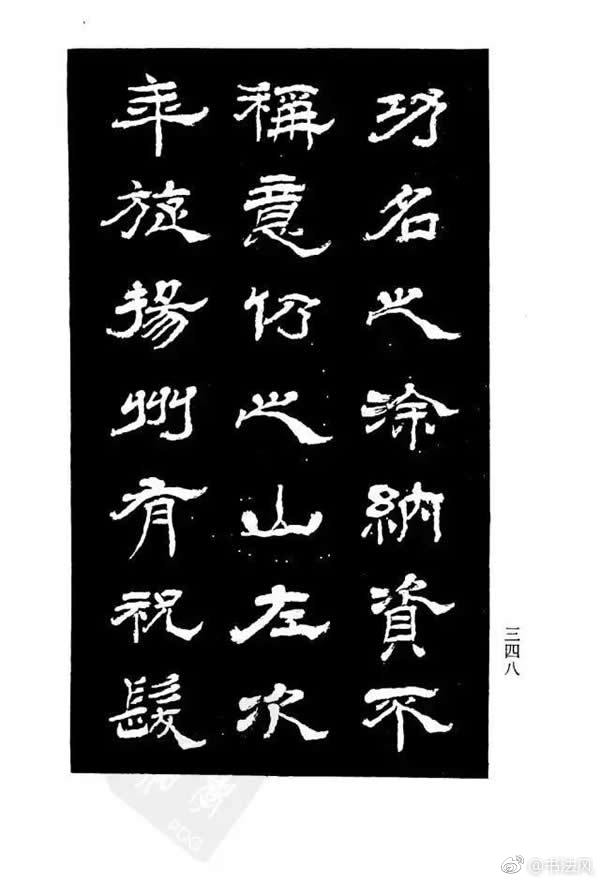 功名之涂納資不
稱意仍之山左次
年旋揚州有祝髮
三四八
@书法风